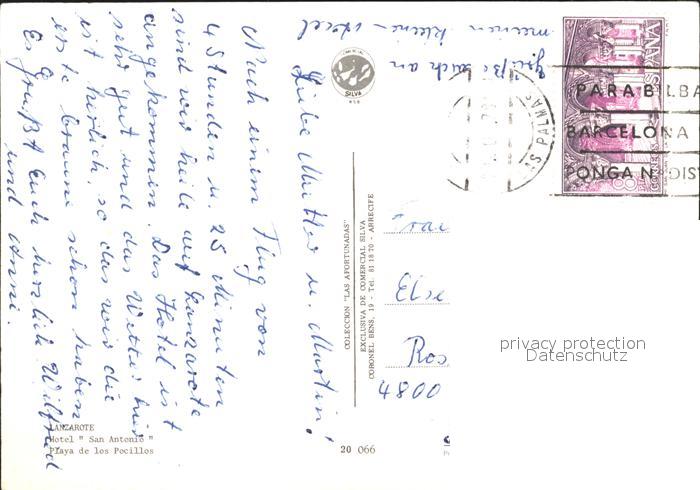 Grüße auch an
meinen kleinen
Liebe Mutter u. Martin!
Nach einem Flug von
4 Stunden u. 25 Minuten
sind wir heile auf Lanzarote
angekommen. Das Hotel ist
sehr gut und das Wetter hier
ist herrlich, so das wir die
erste braune schon haben
Es Grüßt Euch herzlich Wilfried
und Anni.
SILVA
COLECCION "LAS AFORTUNADAS"
EXCLUSIVA DE COMERCIAL SILVA
CORONEL BENS, 19 - Tel. 81 18 70 - ARRECIFE
LANZAROTE
Hotel " San Antonio "
Playa de los Pocillos
20 066
PALMAS
PARA BILBA
BARCELONA
PONGA Nº DIS
CORREOS
Frau
Else
Ros
4800
privacy protection
Datenschutz